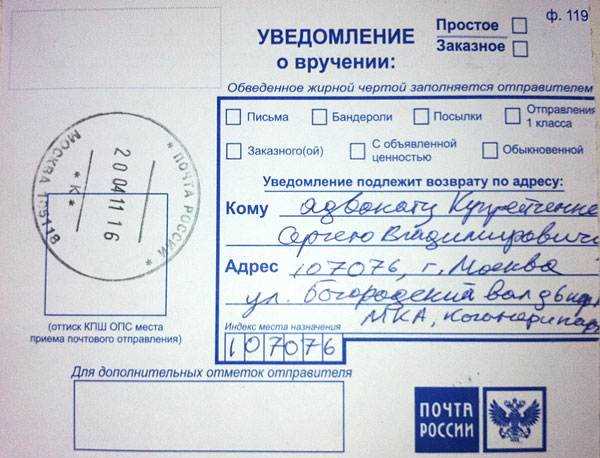 ф. 119
УВЕДОМЛЕНИЕ
о вручении:
Простое
Заказное
Обведенное жирной чертой заполняется отправителем
Письма Бандероли Посылки Отправления 1 класса
Заказного(ой) С объявленной ценностью Обыкновенной
Уведомление подлежит возврату по адресу:
Кому адвокату Купрейченко
Сергею Владимирович
Адрес 107076, г. Москва
ул. Богородский вал
МКА,
Индекс места назначения
107076
* ПОЧТА РОССИИ *
МОСКВА
20041116
* К *
(оттиск КПШ ОПС места
приема почтового отправления)
Для дополнительных отметок отправителя
ПОЧТА
РОССИИ